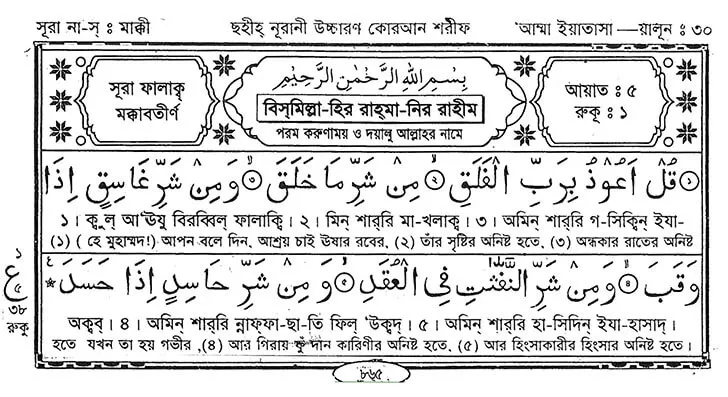 সূরা না-স্ : মাক্কী ছহীহ্ নূরানী উচ্চারণ কোরআন শরীফ 'আম্মা ইয়াতাসা —য়ালূন : ৩০
সূরা ফালাক্ব
মক্কাবতীর্ণ
بِسْمِ اللهِ الرَّحْمٰنِ الرَّحِيْمِ
বিস্‌মিল্লা-হির রাহ্‌মা-নির রাহীম
পরম করুণাময় ও দয়ালু আল্লাহর নামে
আয়াত : ৫
রুকূ : ১
① قُلْ اَعُوْذُ بِرَبِّ الْفَلَقِ ② مِنْ شَرِّ مَا خَلَقَ ③ وَمِنْ شَرِّ غَاسِقٍ اِذَا
১। ক্বুল্ আ'ঊযু বিরব্বিল ফালাক্বি। ২। মিন্ শার্‌রি মা-খলাক্ব। ৩। অমিন্ শার্‌রি গ-সিক্বিন্ ইযা-
(১) (হে মুহাম্মদ!) আপন বলে দিন, আশ্রয় চাই ঊষার রবের, (২) তাঁর সৃষ্টির অনিষ্ট হতে, (৩) অন্ধকার রাতের অনিষ্ট
وَقَبَ ④ وَمِنْ شَرِّ النَّفّٰثٰتِ فِى الْعُقَدِ ⑤ وَمِنْ شَرِّ حَاسِدٍ اِذَا حَسَدَ
অক্বব্। ৪। অমিন্ শার্‌রি ন্নাফ্‌ফা-ছা-তি ফিল্ 'উক্বদ্। ৫। অমিন্ শার্‌রি হা-সিদিন্ ইযা-হাসাদ্।
হতে যখন তা হয় গভীর, (৪) আর গিরায় ফুঁ দান কারিণীর অনিষ্ট হতে, (৫) আর হিংসাকারীর হিংসার অনিষ্ট হতে।
১
ع
৫
৩৮
রুকু
৮৬৫